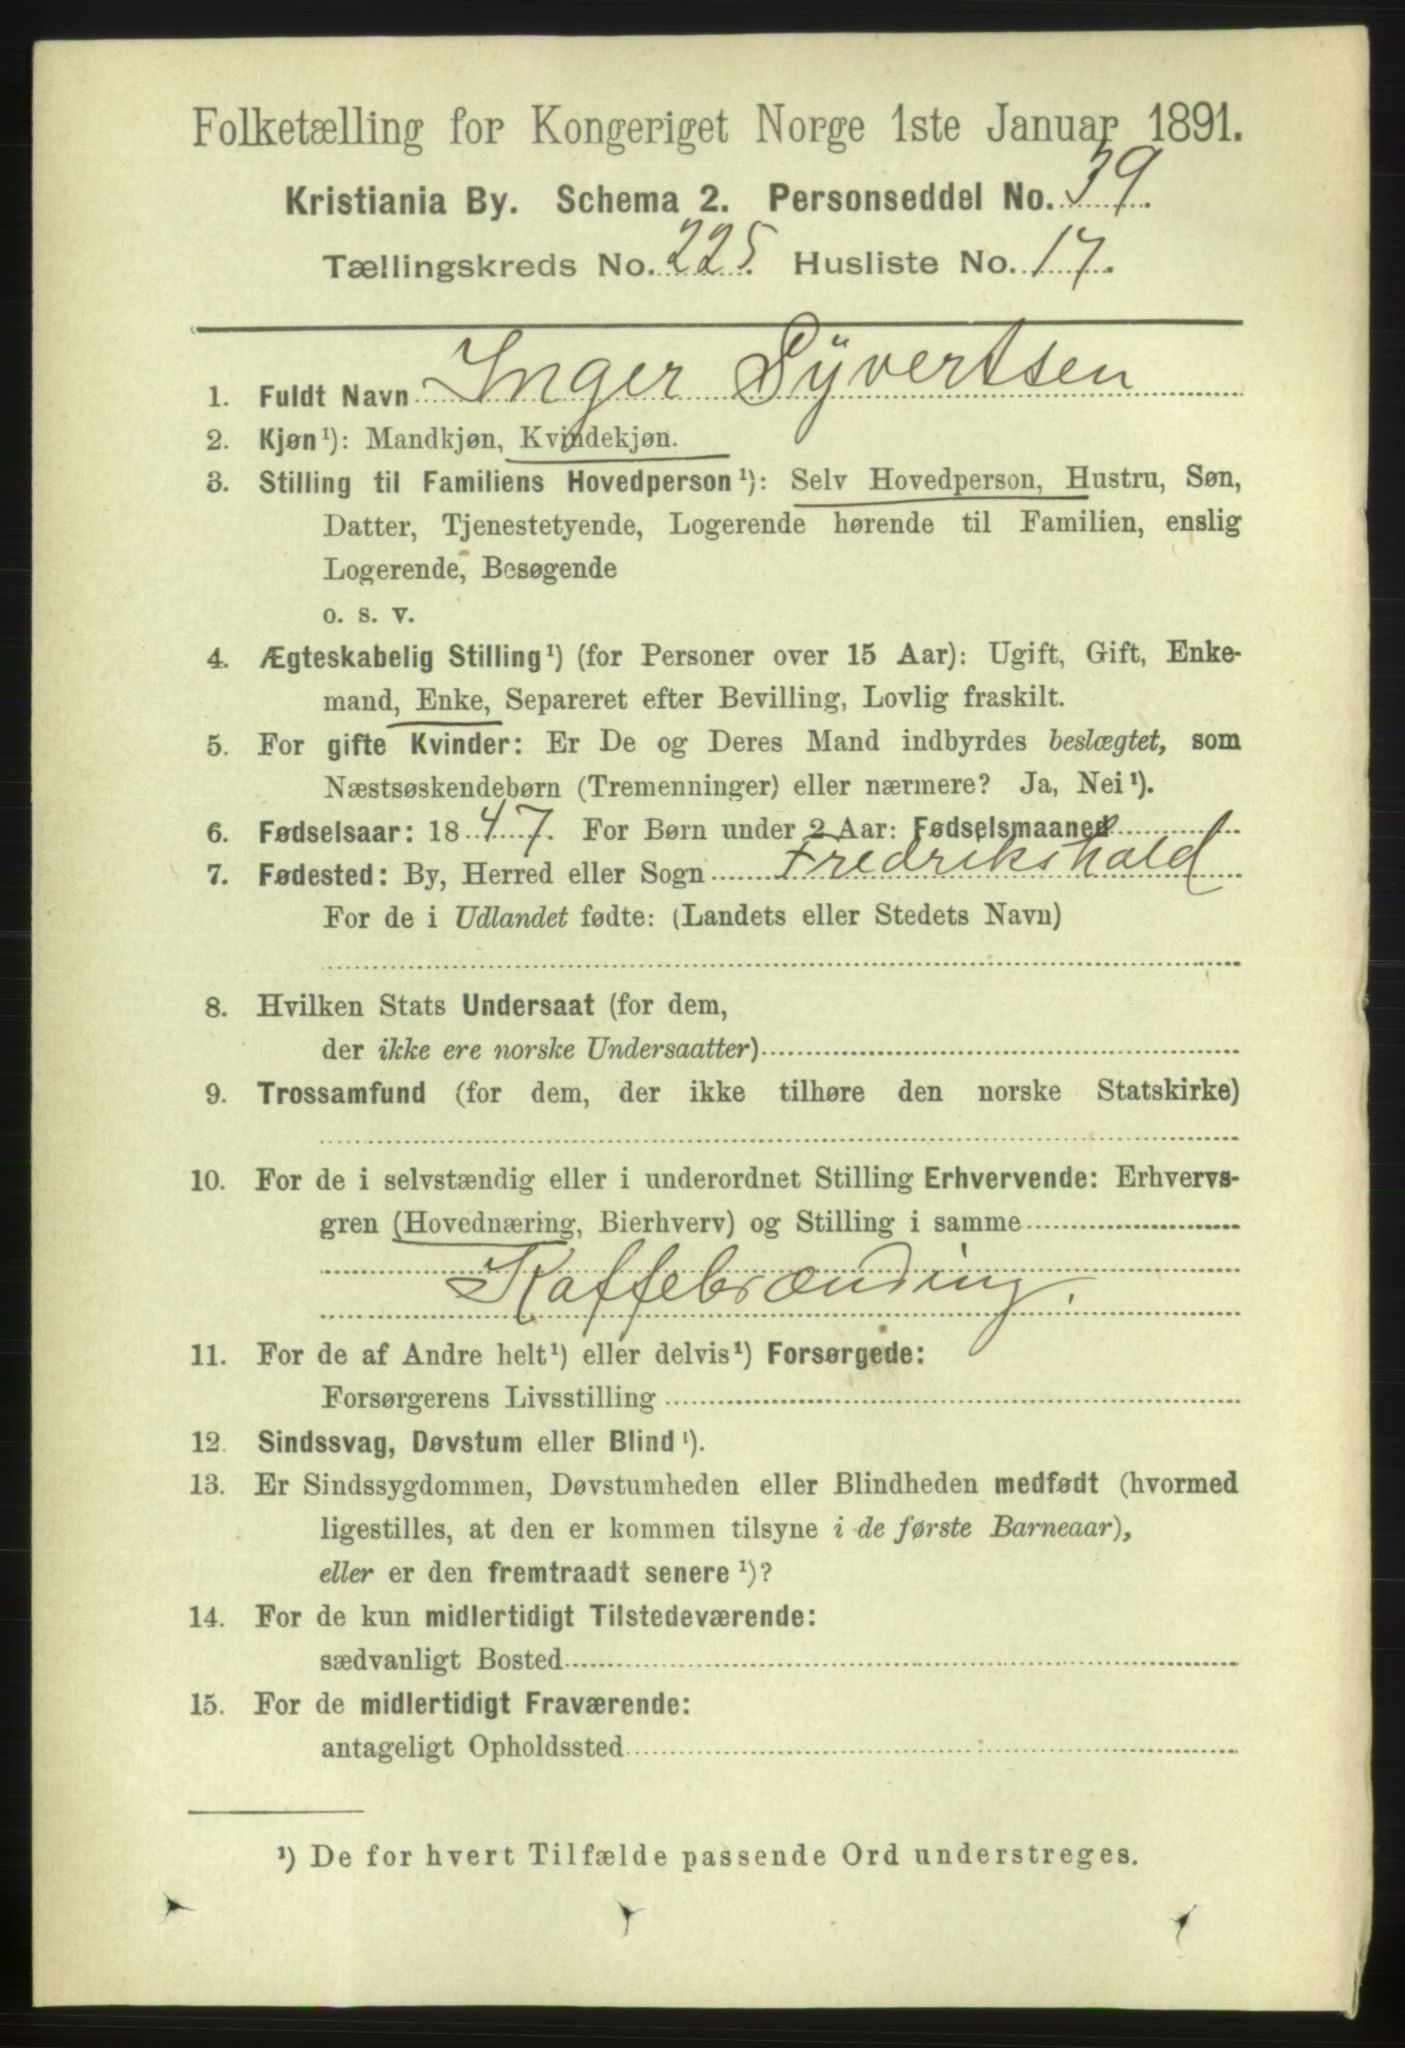 Folketælling for Kongeriget Norge 1ste Januar 1891.
Kristiania By. Schema 2. Personseddel No. 39.
Tællingskreds No. 225. Husliste No. 17.
1. Fuldt Navn Inger Syvertsen
2. Kjøn¹): Mandkjøn, Kvindekjøn.
3. Stilling til Familiens Hovedperson¹): Selv Hovedperson, Hustru, Søn,
Datter, Tjenestetyende, Logerende hørende til Familien, enslig
Logerende, Besøgende
o. s. v.
4. Ægteskabelig Stilling¹) (for Personer over 15 Aar): Ugift, Gift, Enke-
mand, Enke, Separeret efter Bevilling, Lovlig fraskilt.
5. For gifte Kvinder: Er De og Deres Mand indbyrdes beslægtet, som
Næstsøskendebørn (Tremenninger) eller nærmere? Ja, Nei¹).
6. Fødselsaar: 1847. For Børn under 2 Aar: Fødselsmaaned
7. Fødested: By, Herred eller Sogn Fredrikshald
For de i Udlandet fødte: (Landets eller Stedets Navn)
8. Hvilken Stats Undersaat (for dem,
der ikke ere norske Undersaatter)
9. Trossamfund (for dem, der ikke tilhøre den norske Statskirke)
10. For de i selvstændig eller i underordnet Stilling Erhvervende: Erhvervs-
gren (Hovednæring, Bierhverv) og Stilling i samme
Kaffebrænding.
11. For de af Andre helt¹) eller delvis¹) Forsørgede:
Forsørgerens Livsstilling
12. Sindssvag, Døvstum eller Blind¹).
13. Er Sindssygdommen, Døvstumheden eller Blindheden medfødt (hvormed
ligestilles, at den er kommen tilsyne i de første Barneaar),
eller er den fremtraadt senere¹)?
14. For de kun midlertidigt Tilstedeværende:
sædvanligt Bosted
15. For de midlertidigt Fraværende:
antageligt Opholdssted
¹) De for hvert Tilfælde passende Ord understreges.